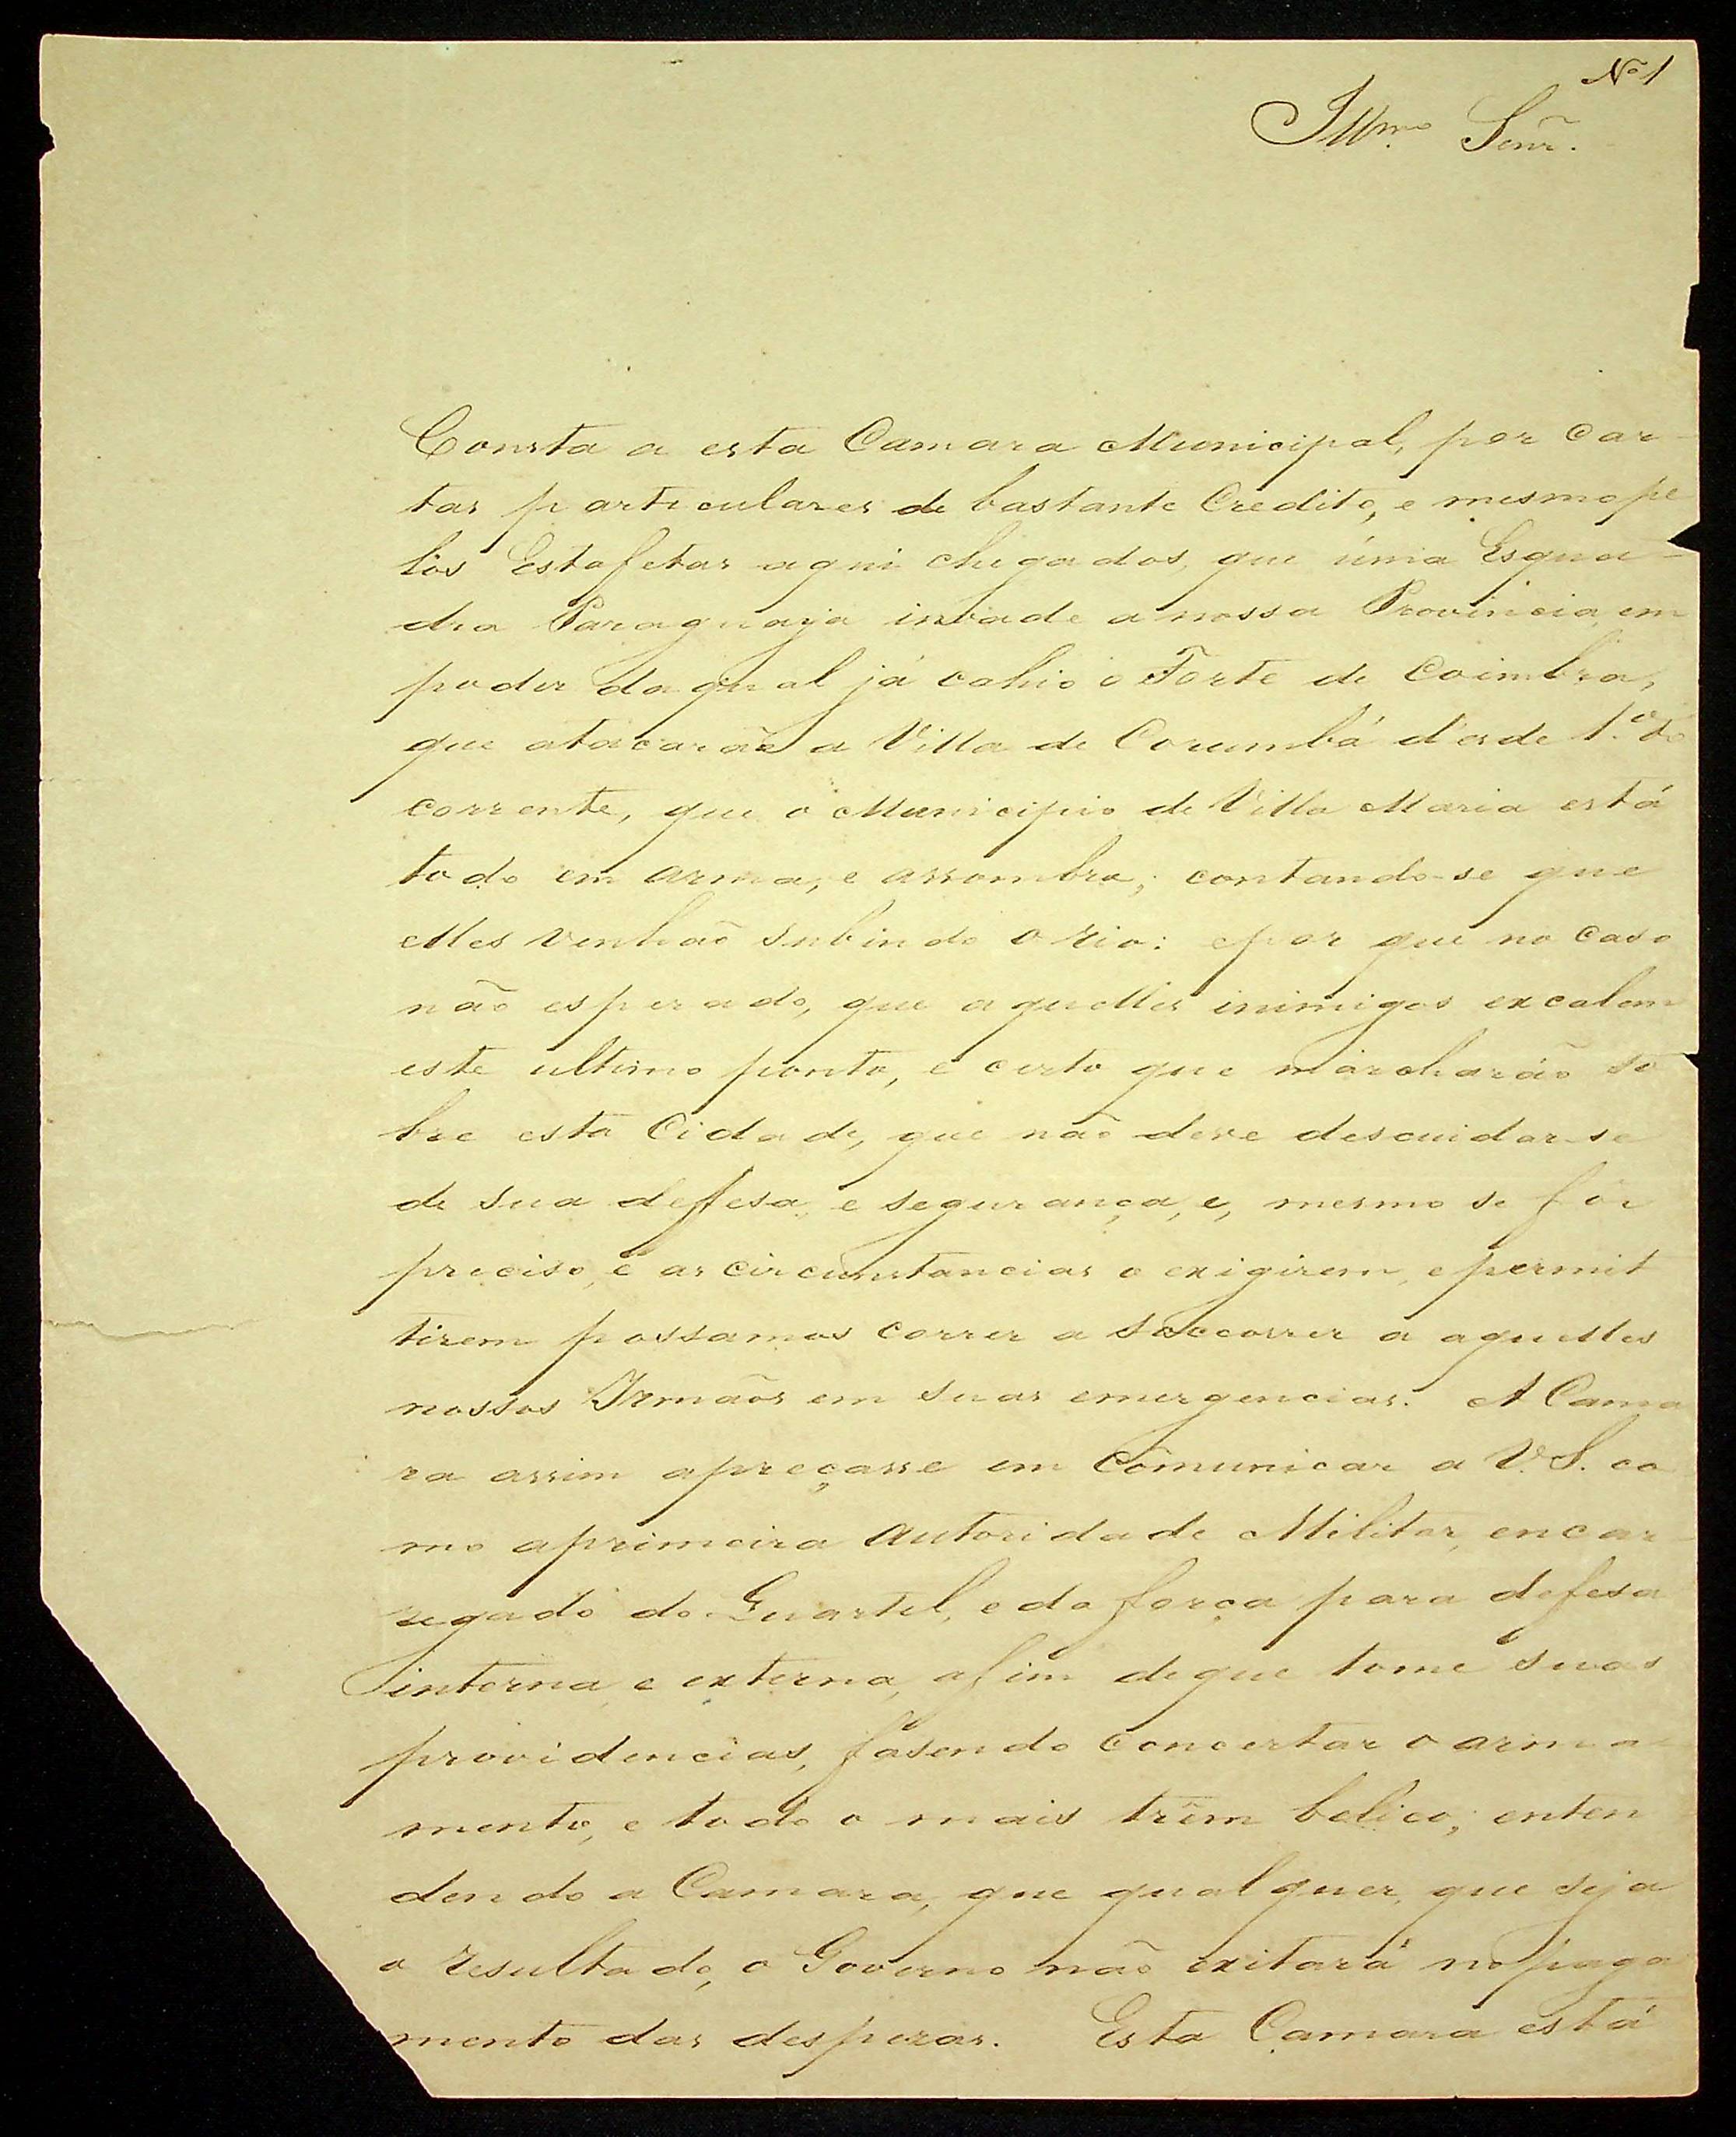 Nº 1
Illmº Senr.
Consta a esta Camara Municipal, por Car-
tas particulares de bastante Credito, e mesmo pe
los Estafetas aqui chegados, que úma Esqua-
dra Paraguaya invade a nossa Provincia, em
poder da qual já cahio o Forte de Coimbra,
que atacarão a Villa de Corumbá d'esde 1.º do
corrente, que o Municipio de Villa Maria está
todo em arma, e assombro; contando-se que
elles venhão subindo o rio: e por que no caso
não esperado, que aquelles inimigos excalem
este ultimo ponto, é certo que marcharáõ so
bre esta Cidade, que não deve descuidar-se
de sua deffesa, e segurança, e, mesmo se fôr
preciso, e as circunstancias o exigirem, e permit
tirem possamos correr a soccorrer a aquelles
nossos Irmãos em suas emergencias. A Cama
ra assim apreçasse em Cõmunicar a V.S. co
mo aprimeira Autoridade Militar, encar-
regado do Quartel, e da força para defesa
interna, e externa, afim de que tome suas
providencias, fasendo Concertar o arma-
mento, e todo o mais trêm belico; enten
dendo a Camara, que qualquer, que seja
o resultado, o Governo não exitará no paga
mento das despezas. Esta Camara está